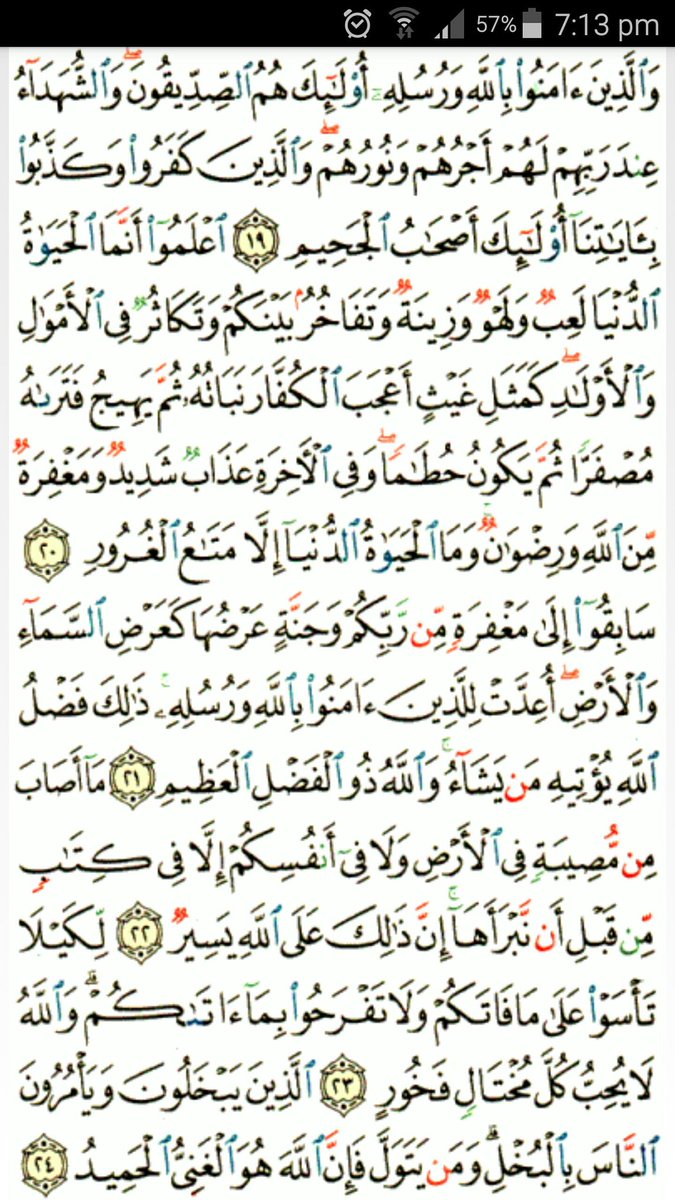 57% 7:13 pm
وَٱلَّذِينَ ءَامَنُوا۟ بِٱللَّهِ وَرُسُلِهِۦٓ أُو۟لَـٰٓئِكَ هُمُ ٱلصِّدِّيقُونَ ۖ وَٱلشُّهَدَآءُ
عِندَ رَبِّهِمْ لَهُمْ أَجْرُهُمْ وَنُورُهُمْ ۖ وَٱلَّذِينَ كَفَرُوا۟ وَكَذَّبُوا۟
بِـَٔايَـٰتِنَآ أُو۟لَـٰٓئِكَ أَصْحَـٰبُ ٱلْجَحِيمِ ١٩ ٱعْلَمُوٓا۟ أَنَّمَا ٱلْحَيَوٰةُ
ٱلدُّنْيَا لَعِبٌ وَلَهْوٌ وَزِينَةٌ وَتَفَاخُرٌۢ بَيْنَكُمْ وَتَكَاثُرٌ فِى ٱلْأَمْوَٰلِ
وَٱلْأَوْلَـٰدِ ۖ كَمَثَلِ غَيْثٍ أَعْجَبَ ٱلْكُفَّارَ نَبَاتُهُۥ ثُمَّ يَهِيجُ فَتَرَىٰهُ
مُصْفَرًّا ثُمَّ يَكُونُ حُطَـٰمًا ۖ وَفِى ٱلْـَٔاخِرَةِ عَذَابٌ شَدِيدٌ وَمَغْفِرَةٌ
مِّنَ ٱللَّهِ وَرِضْوَٰنٌ ۚ وَمَا ٱلْحَيَوٰةُ ٱلدُّنْيَآ إِلَّا مَتَـٰعُ ٱلْغُرُورِ ٢٠
سَابِقُوٓا۟ إِلَىٰ مَغْفِرَةٍ مِّن رَّبِّكُمْ وَجَنَّةٍ عَرْضُهَا كَعَرْضِ ٱلسَّمَآءِ
وَٱلْأَرْضِ ۖ أُعِدَّتْ لِلَّذِينَ ءَامَنُوا۟ بِٱللَّهِ وَرُسُلِهِۦ ۚ ذَٰلِكَ فَضْلُ
ٱللَّهِ يُؤْتِيهِ مَن يَشَآءُ ۚ وَٱللَّهُ ذُو ٱلْفَضْلِ ٱلْعَظِيمِ ٢١ مَآ أَصَابَ
مِن مُّصِيبَةٍ فِى ٱلْأَرْضِ وَلَا فِىٓ أَنفُسِكُمْ إِلَّا فِى كِتَـٰبٍ
مِّن قَبْلِ أَن نَّبْرَأَهَآ ۚ إِنَّ ذَٰلِكَ عَلَى ٱللَّهِ يَسِيرٌ ٢٢ لِّكَيْلَا
تَأْسَوْا۟ عَلَىٰ مَا فَاتَكُمْ وَلَا تَفْرَحُوا۟ بِمَآ ءَاتَىٰكُمْ ۗ وَٱللَّهُ
لَا يُحِبُّ كُلَّ مُخْتَالٍ فَخُورٍ ٢٣ ٱلَّذِينَ يَبْخَلُونَ وَيَأْمُرُونَ
ٱلنَّاسَ بِٱلْبُخْلِ ۗ وَمَن يَتَوَلَّ فَإِنَّ ٱللَّهَ هُوَ ٱلْغَنِىُّ ٱلْحَمِيدُ ٢٤